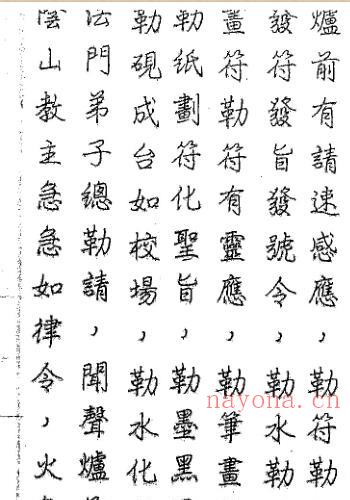 爐前有請速感應，勒符勒
發符發旨發號令，勒水勒
畫符勒符有靈應，勒筆畫
勒紙劃符化聖旨，勒墨黑
勒硯成台如校場，勒水化
法門弟子總勒請，聞聲爐
陰山教主急急如律令，火
nayona.cn